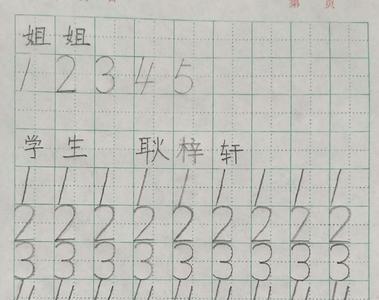 第 页
姐 姐
1 2 3 4 5
学 生 耿 梓 轩
1 1 1 1 1 1 1 1 1
2 2 2 2 2 2 2 2 2
3 3 3 3 3 3 3 3 3
4 4 4 4 4 4 4 4 4